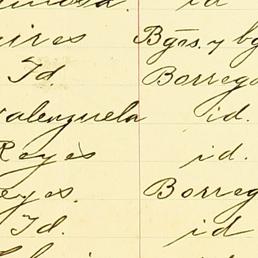 id
ires Bges. y bg
Id. Borrego
Valenzuela id.
Reyes id.
eyes. Borreg
Id. id